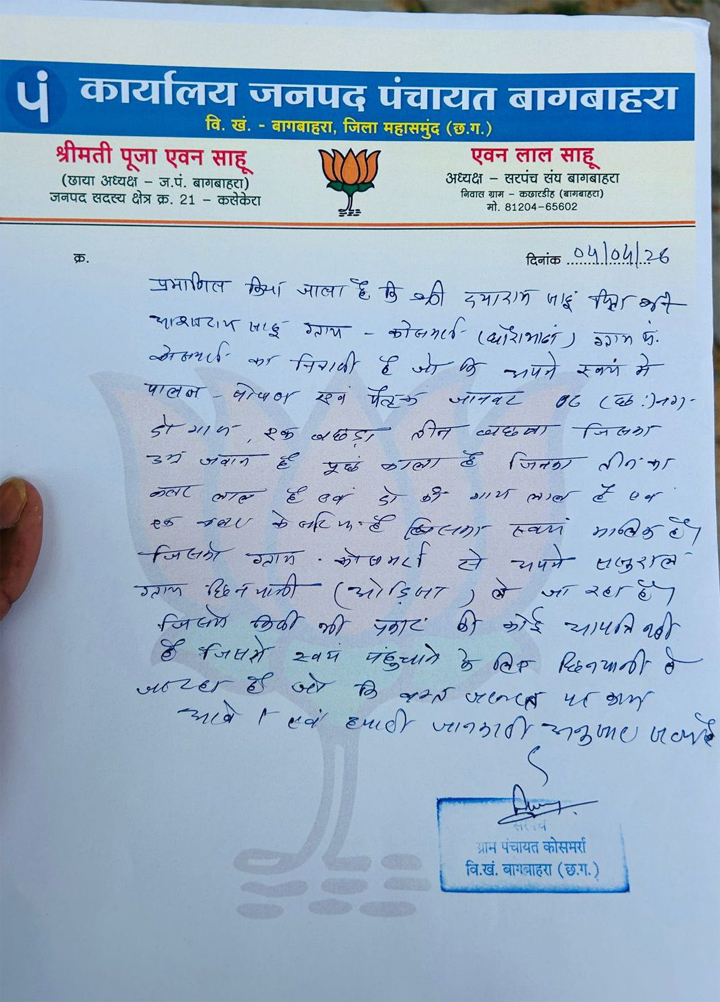 पं कार्यालय जनपद पंचायत बागबाहरा
वि. खं. - बागबाहरा, जिला महासमुंद (छ.ग.)
श्रीमती पूजा एवन साहू
(छाया अध्यक्ष – ज.पं. बागबाहरा)
जनपद सदस्य क्षेत्र क्र. 21 – कसेकेरा
एवन लाल साहू
अध्यक्ष – सरपंच संघ बागबाहरा
निवास ग्राम – कछारडीह (बागबाहरा)
मो. 81204-65602
क्र.
दिनांक 04/04/26
प्रमाणित किया जाता है कि श्री दयाराम साहू पिता श्री
साहू ग्राम – कोसमर्रा ग्राम पं.
कोसमर्रा का निवासी है जो कि अपने स्वयं से
पालन – पोषण एवं पैतृक जानवर 06 (छः) नग-
दो गाय, एक बछड़ा तीन बछवा जिसका
उम्र जवान है पूछ काला है जिनका तीन का
कलर लाल है एवं दो की गाय लाल है एवं
एक कलर के है जिसका स्वयं मालिक है।
जिसको ग्राम - कोसमर्रा से अपने ससुराल
ग्राम छिनपानी (ओड़िसा) ले जा रहा है।
जिसमें किसी भी प्रकार की कोई आपत्ति नही
है जिसमें स्वयं पहुंचाने के लिए छिनपानी ले
जा रहा है जो कि वक्त जरूरत पर काम
आवे। एवं हमारी जानकारी अनुसार
सरपंच
ग्राम पंचायत कोसमर्रा
वि.खं. बागबाहरा (छ.ग.)